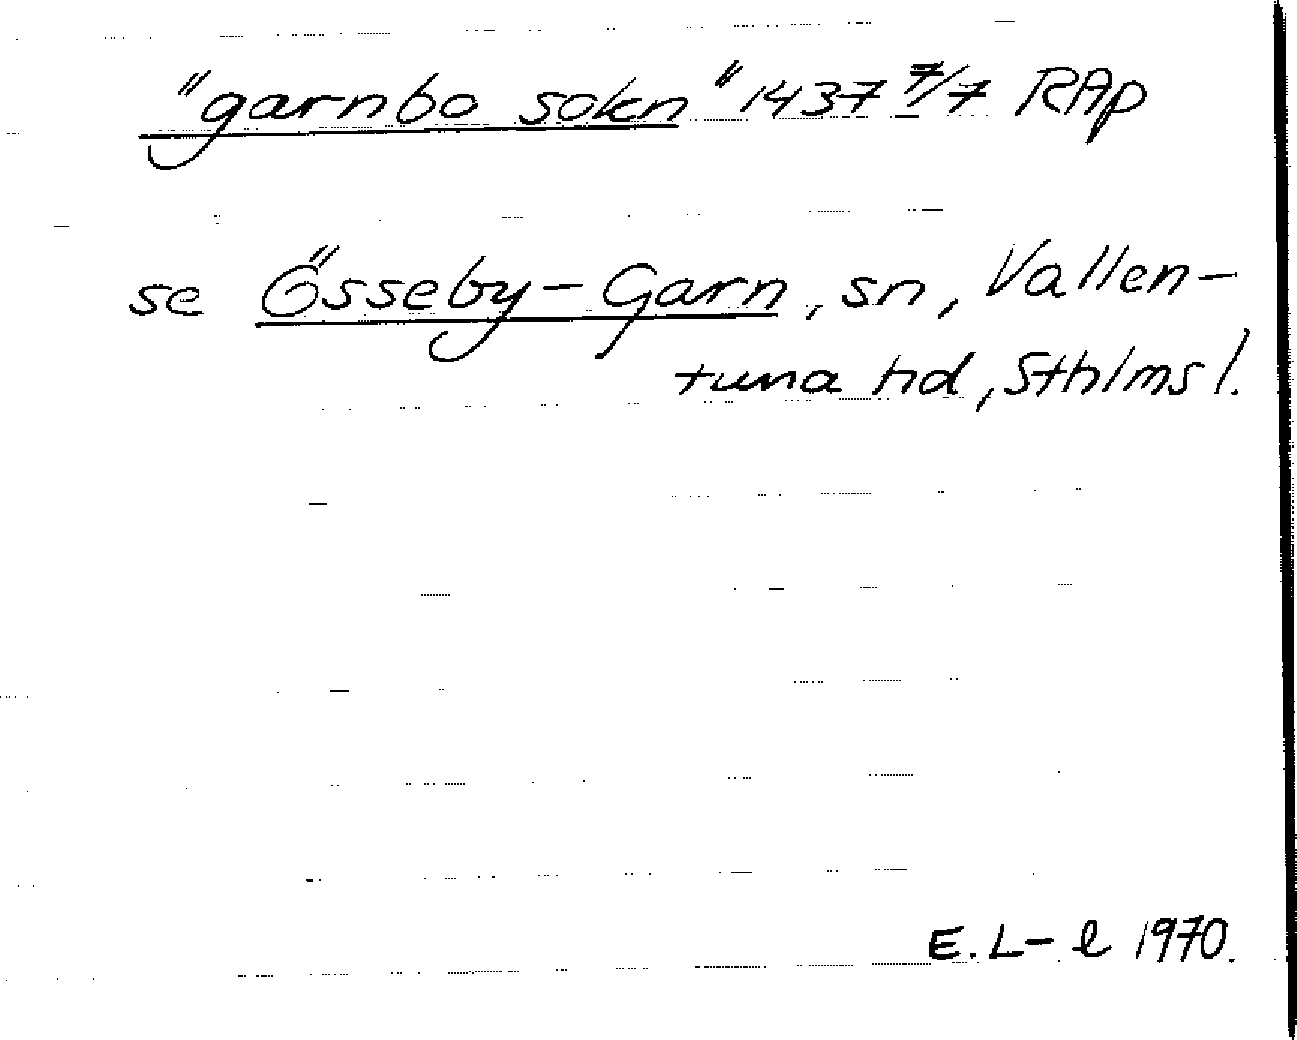 "garnbo sokn" 1437 7/7 RAp
se Össeby-Garn, sn, Vallen-
tuna hd, Sthlms l.
E. L-l 1970.